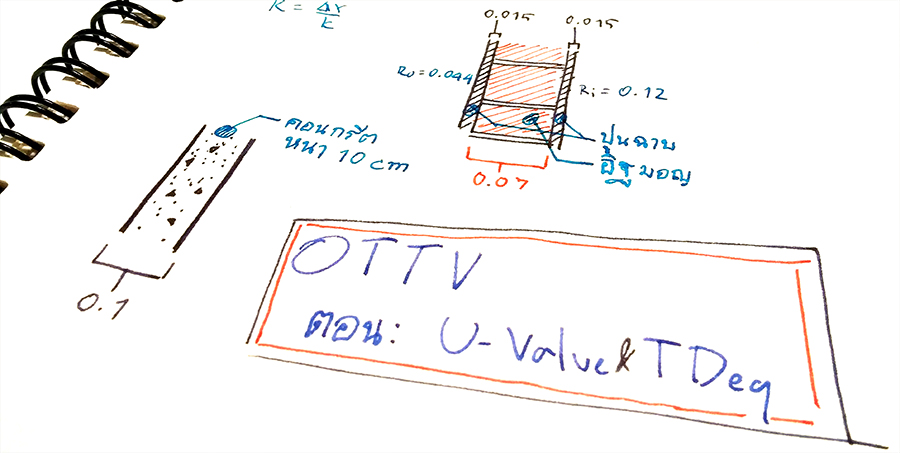 R = Δx/k
0.015 0.015
Ro = 0.044
Ri = 0.12
คอนกรีต
หนา 10 cm
ปูนฉาบ
อิฐมอญ
0.07
0.1
OTTV
ตอน: U-Value & TDeq